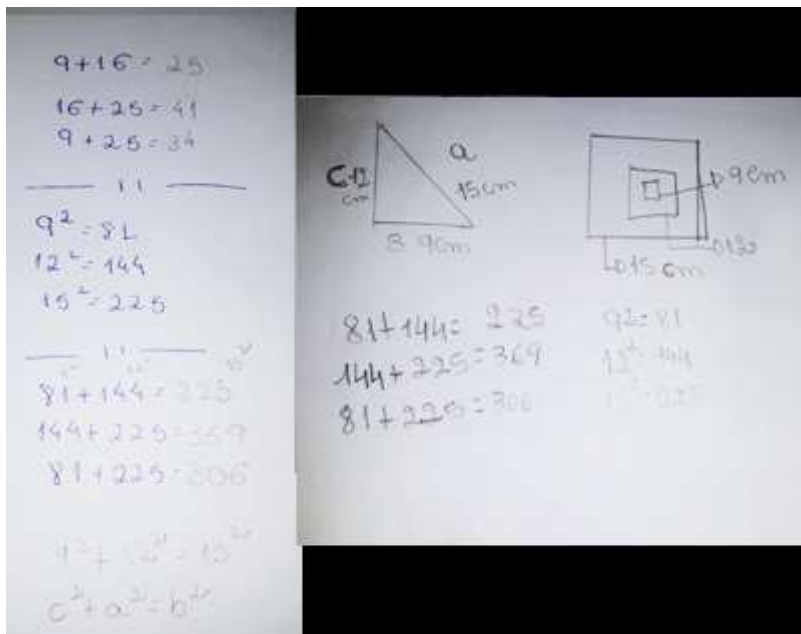 9+16=25
16+25=41
9+25=34
11
9²=81
12²=144
15²=225
11
b²
81+144=225
144+225=369
81+225=306
9²+12²=15²
c²+a²=b²
C 12 cm
a
15cm
B 9cm
9cm
15 cm
81+144= 225
144+225=369
81+225=306
9²=81
12²=144
15²=225